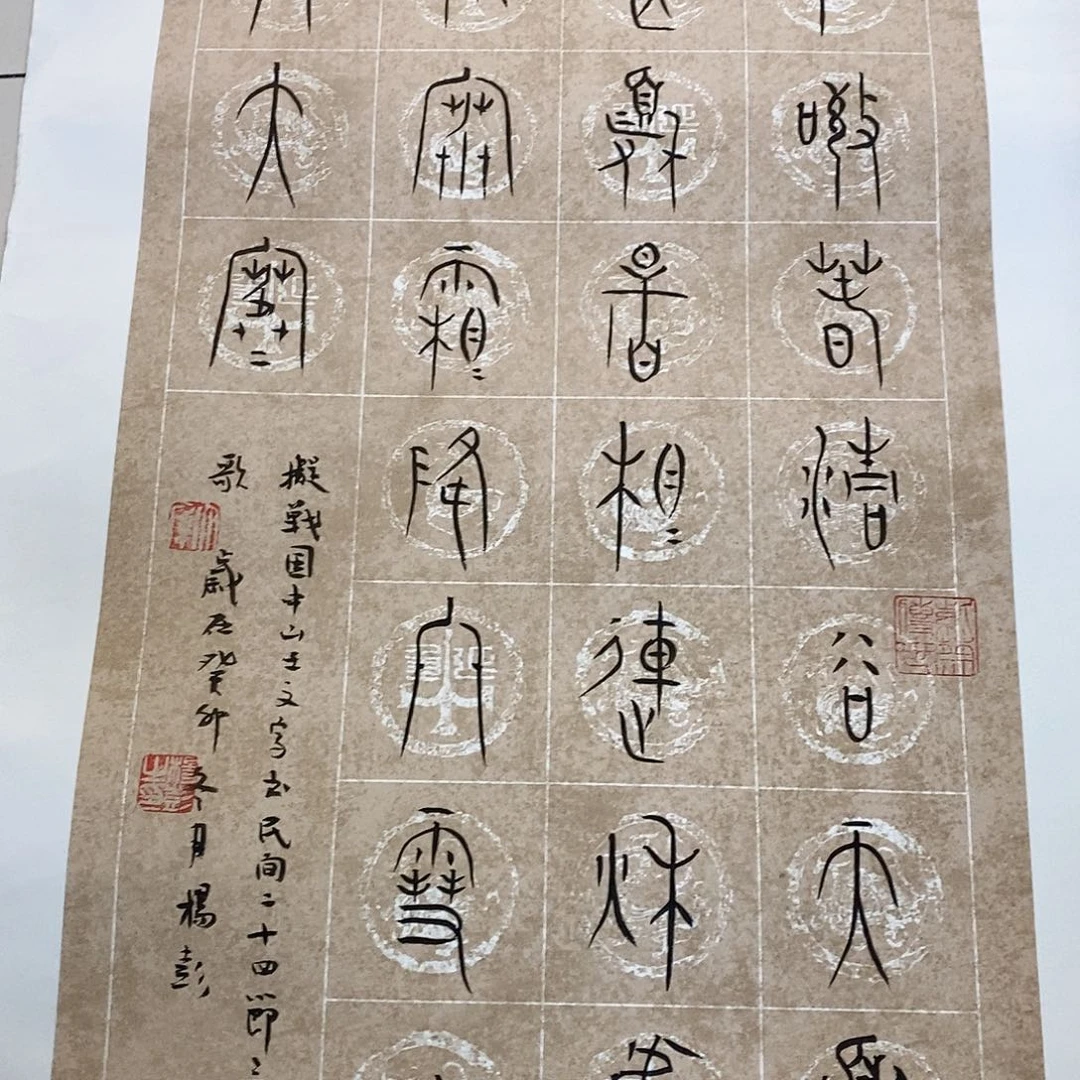 驚春清谷天
夏暑相連秋
寒霜降冬雪
大寒
擬战国中山王文字书民间二十四節
歌 歲在癸卯冬月 楊彭